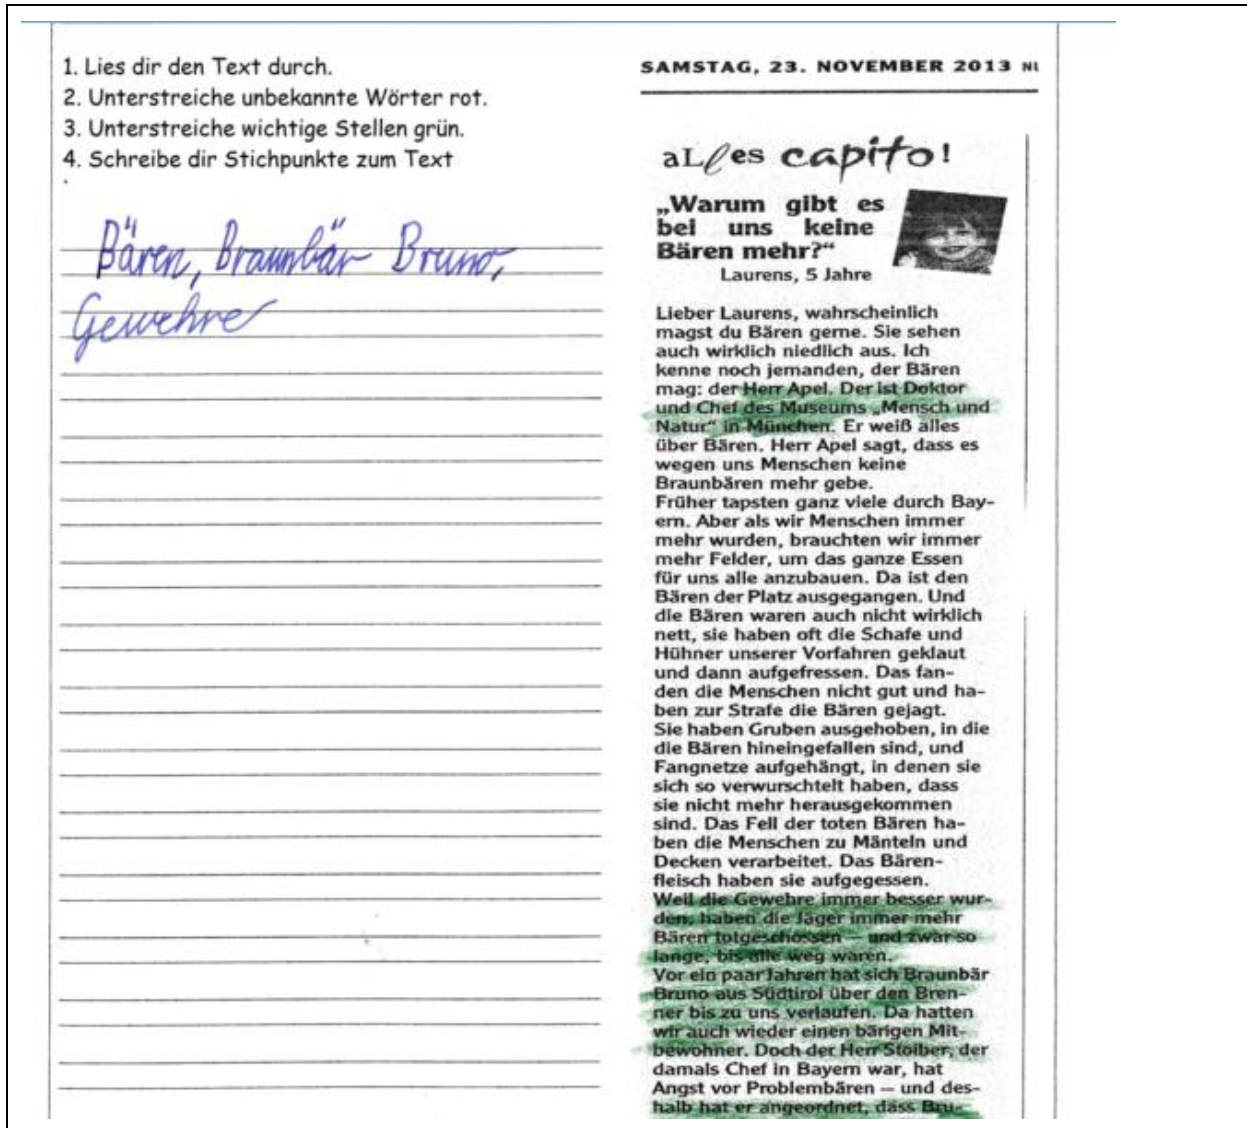 1. Lies dir den Text durch.
2. Unterstreiche unbekannte Wörter rot.
3. Unterstreiche wichtige Stellen grün.
4. Schreibe dir Stichpunkte zum Text
Bären, Braunbär Bruno,
Gewehre
SAMSTAG, 23. NOVEMBER 2013
aLLes capito!
„Warum gibt es
bei uns keine
Bären mehr?“
Laurens, 5 Jahre
Lieber Laurens, wahrscheinlich
magst du Bären gerne. Sie sehen
auch wirklich niedlich aus. Ich
kenne noch jemanden, der Bären
mag: der Herr Apel. Der ist Doktor
und Chef des Museums „Mensch und
Natur“ in München. Er weiß alles
über Bären. Herr Apel sagt, dass es
wegen uns Menschen keine
Braunbären mehr gebe.
Früher tapsten ganz viele durch Bay-
ern. Aber als wir Menschen immer
mehr wurden, brauchten wir immer
mehr Felder, um das ganze Essen
für uns alle anzubauen. Da ist den
Bären der Platz ausgegangen. Und
die Bären waren auch nicht wirklich
nett, sie haben oft die Schafe und
Hühner unserer Vorfahren geklaut
und dann aufgefressen. Das fan-
den die Menschen nicht gut und ha-
ben zur Strafe die Bären gejagt.
Sie haben Gruben ausgehoben, in die
die Bären hineingefallen sind, und
Fangnetze aufgehängt, in denen sie
sich so verwurschtelt haben, dass
sie nicht mehr herausgekommen
sind. Das Fell der toten Bären ha-
ben die Menschen zu Mänteln und
Decken verarbeitet. Das Bären-
fleisch haben sie aufgegessen.
Weil die Gewehre immer besser wur-
den, haben die Jäger immer mehr
Bären totgeschossen — und zwar so
lange, bis alle weg waren.
Vor ein paar Jahren hat sich Braunbär
Bruno aus Südtirol über den Bren-
ner bis zu uns verlaufen. Da hatten
wir auch wieder einen bärigen Mit-
bewohner. Doch der Herr Stoiber, der
damals Chef in Bayern war, hat
Angst vor Problembären — und des-
halb hat er angeordnet, dass Bru-